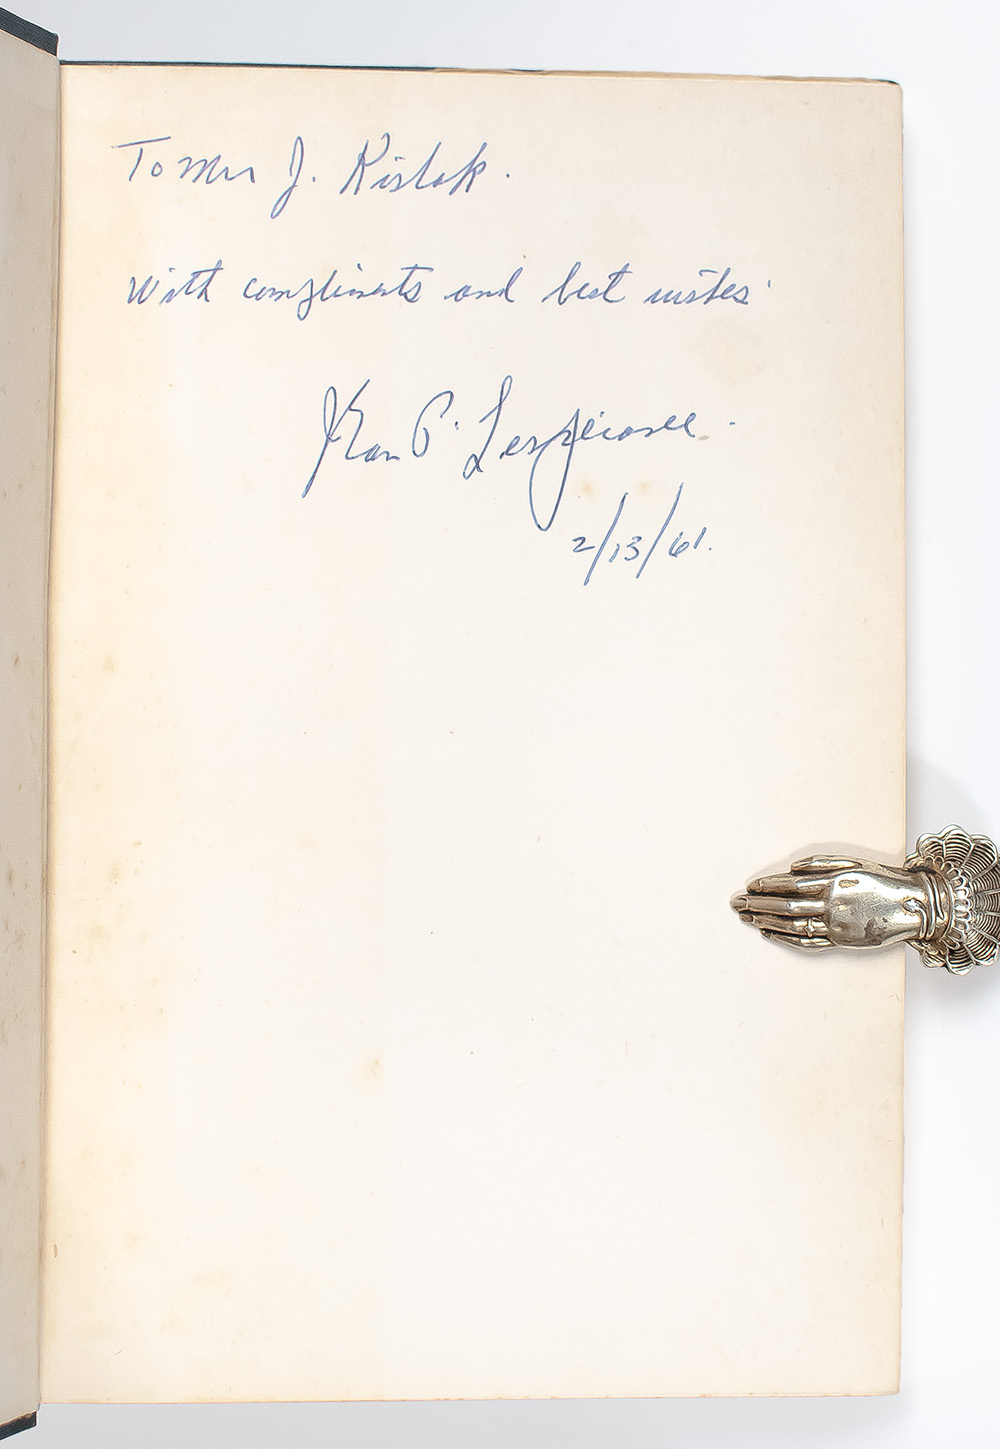 To Mrs J. Kislak.
With compliments and best wishes
Jean P. Lesperance.
2/13/61.